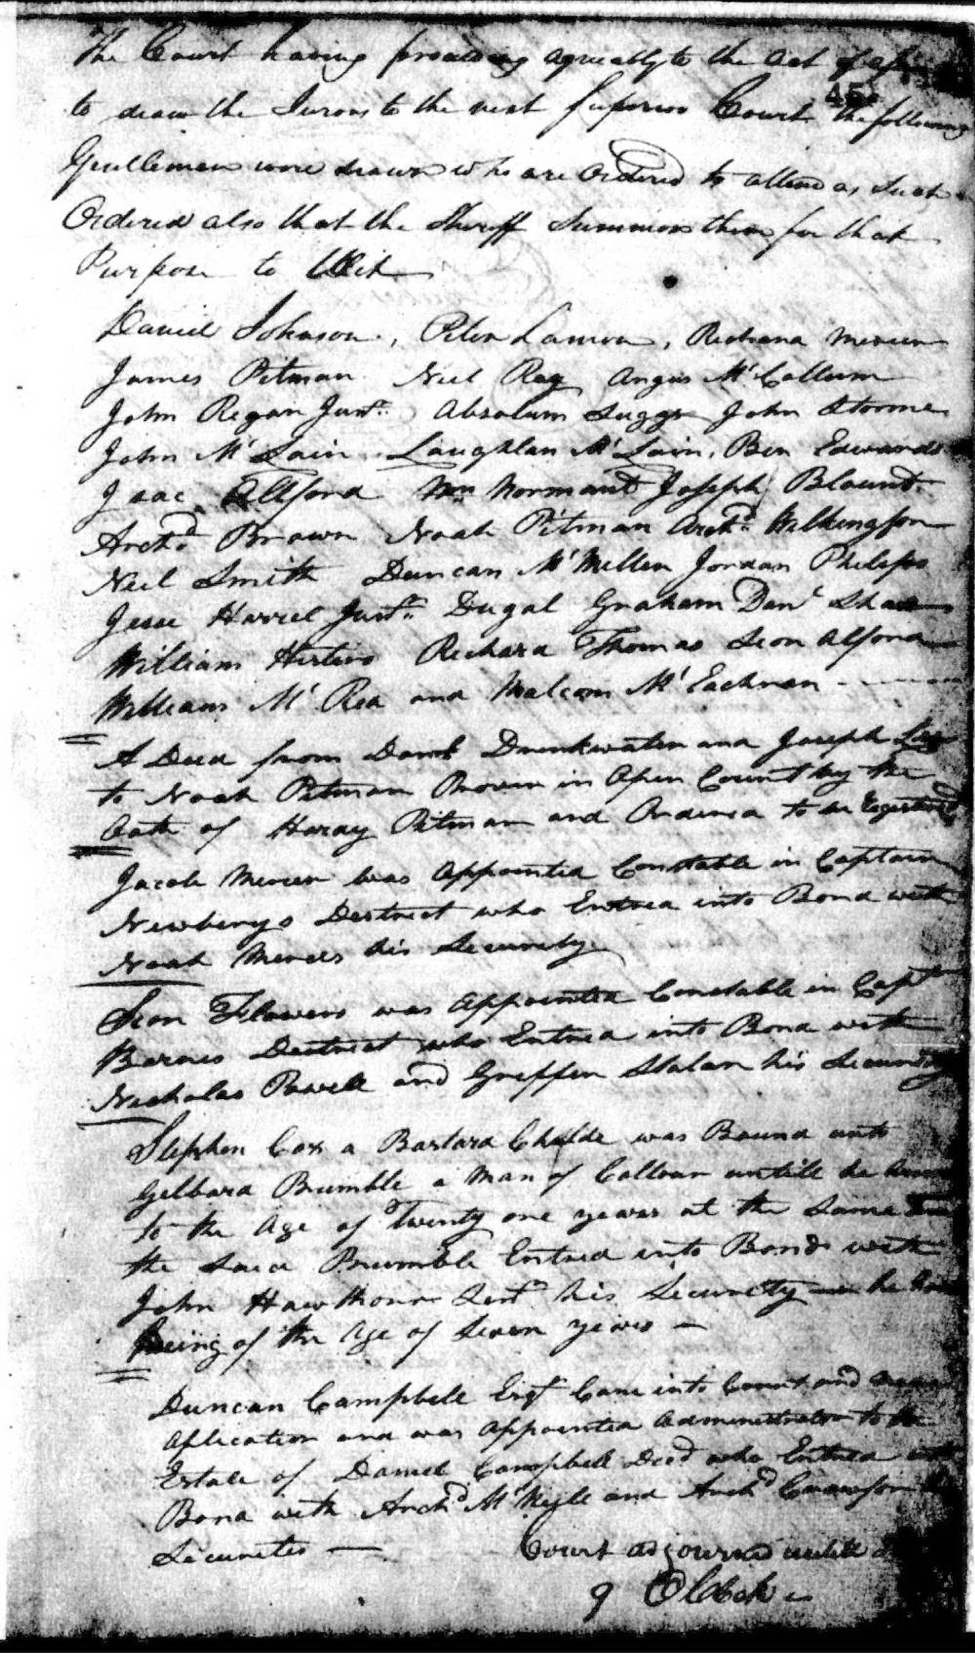 The Court having proceeding agreably to the Act of
45
to draw the Jurors to the next Superior Court the following
Gentlemen were drawn who are Ordered to attend as Such
Ordered also that the Sheriff Summons them for that
Purpose to Wit
Daniel Johnson, Peter Lamon, Richard Mercer
James Pitman Neil Ray Angus McCallum
John Regan Junr. Absalum Suggs John Storme
John McLain Laughlan McLain, Ben Edwards
Isaac Allford Wm Normant Joseph Blount
Archd Brown Noah Pitman Archd Wilkingson
Neil Smith Duncan McMillen Jordan Philips
Jesse Harrel Junr. Dugal Graham Danl Shaw
William Richard Thomas Sion Alford
William McRea and Malcom McEachran
A Deed from Danl Drinkwater and Joseph
to Noah Pitman Proven in Open Court by the
Oath of Hardy Pitman and Ordered to be Registered
Jacob Mercer was Appointed Constable in Captain
Newberys Destrect who Entred into Bond with
Noah Mercer his Security
Sion Flowers was Appointed Constable in Capt
Barnes Destrect who Entred into Bond with
Nicholas Powell and Greffen his Security
Stephen Cox a Bastard Childe was Bound unto
Gelbard Brumble a Man of Collour untill he
to the Age of Twenty one years at the Same Time
the Said Brumble Entred into Bond with
John Hawthorn his Security he
being of the Age of Seven years
Duncan Campbell Esqr Came into Court and
Aplication and was Appointed Administrator to the
Estate of Daniel Campbell Decd who Entred into
Bond with Archd and Archd
Securetes Court adjourned untill
9 OClock